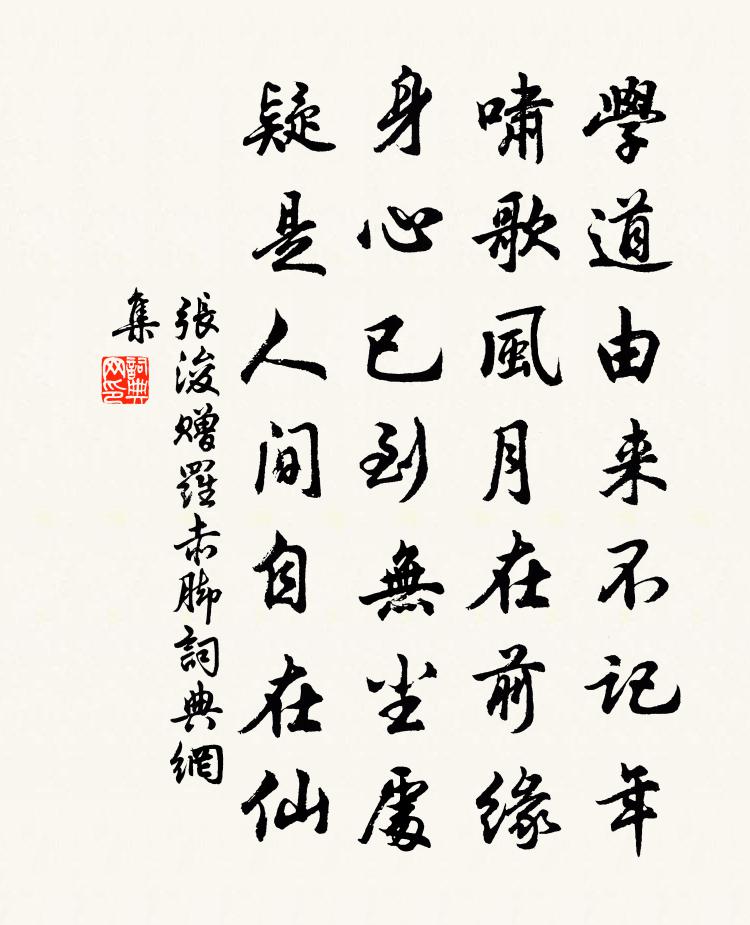 學道由来不記年
嘯歌風月在前緣
身心已到無尘處
疑是人间自在仙
張浚贈羅赤脚詞典網
集
詞典
网印